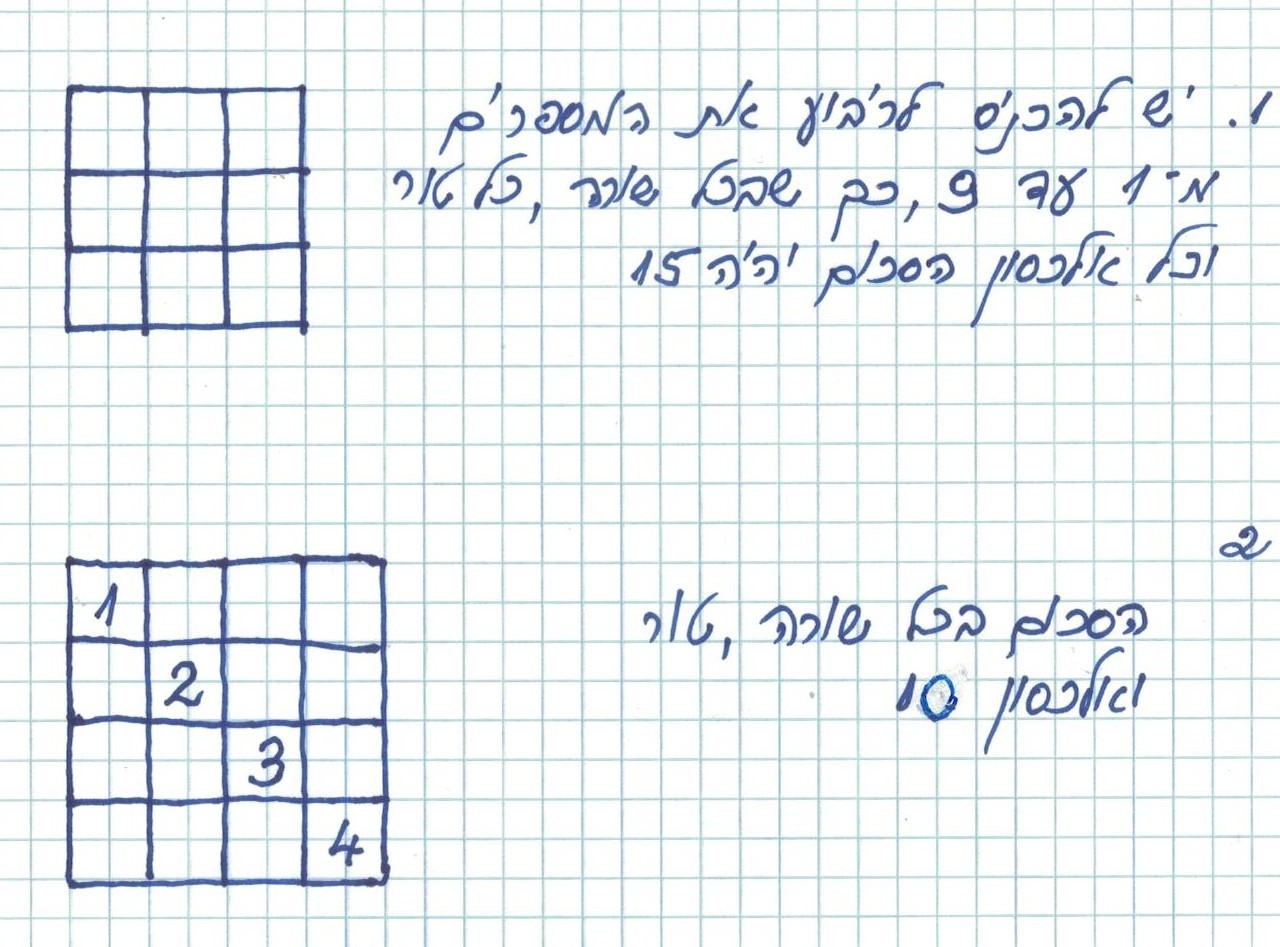 1. יש להכניס לריבוע את המספרים
מ-1 עד 9, כך שבכל שורה, כל טור
וכל אלכסון הסכום יהיה 15
2
הסכום בכל שורה, טור
ואלכסון 10
1
2
3
4